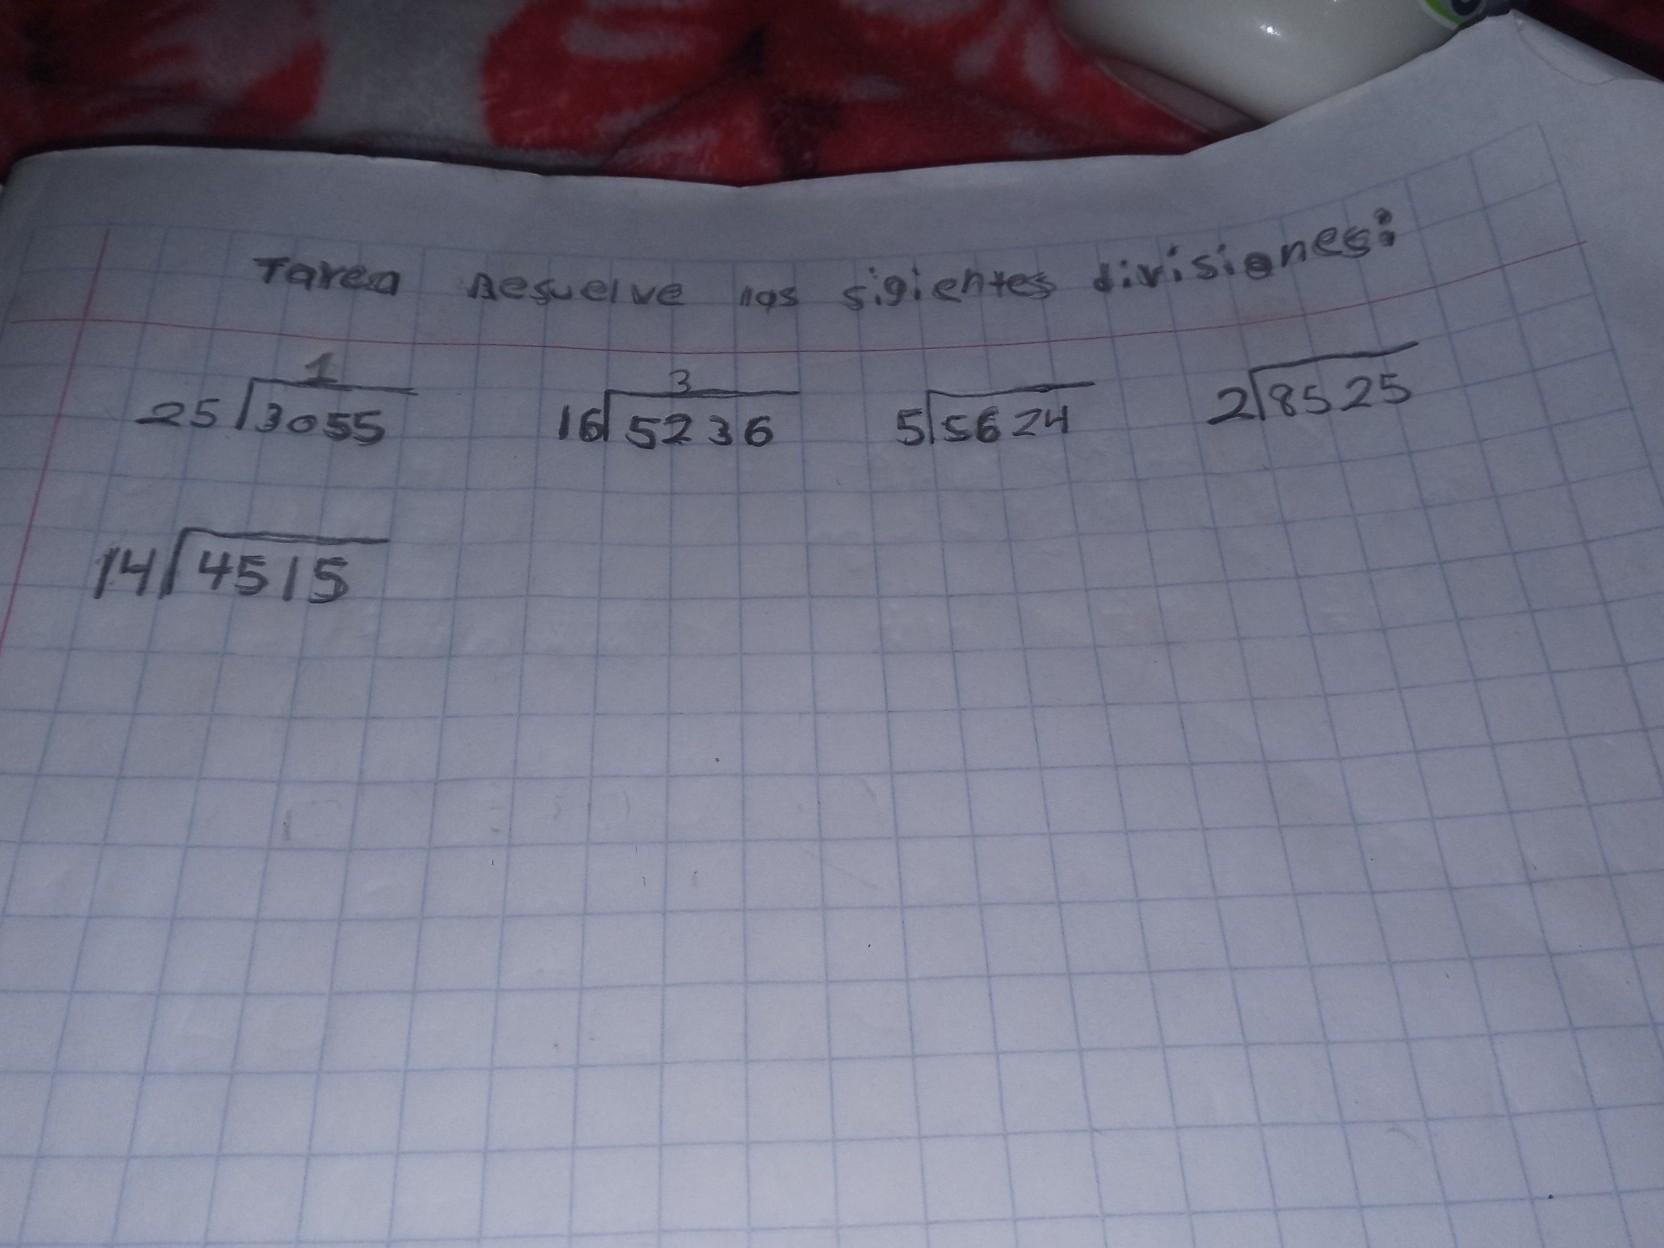 Tarea Resuelve las sigientes divisiones:
1 3
25 3055 16 5236 5 5624 2 8525
14 4515